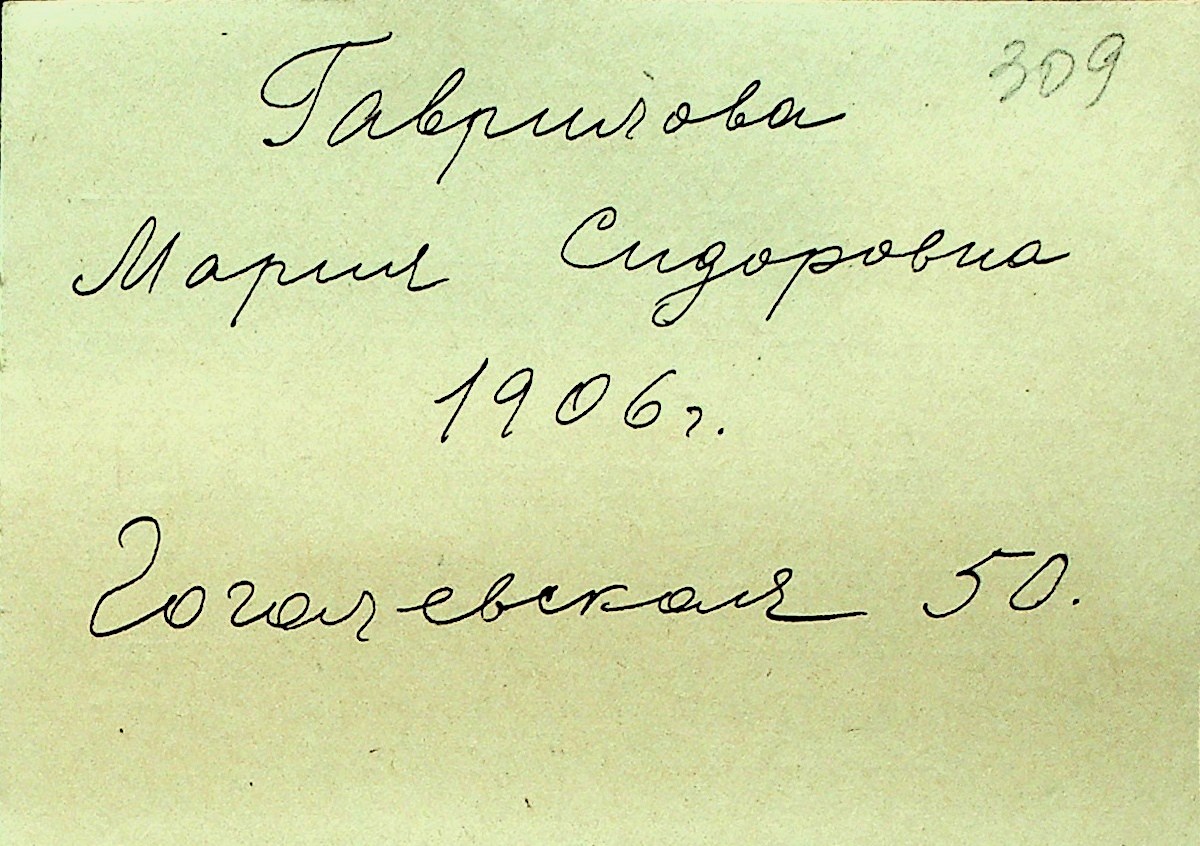 309
Гаврилова
Мария Сидоровна
1906г.
Гоголевская 50.